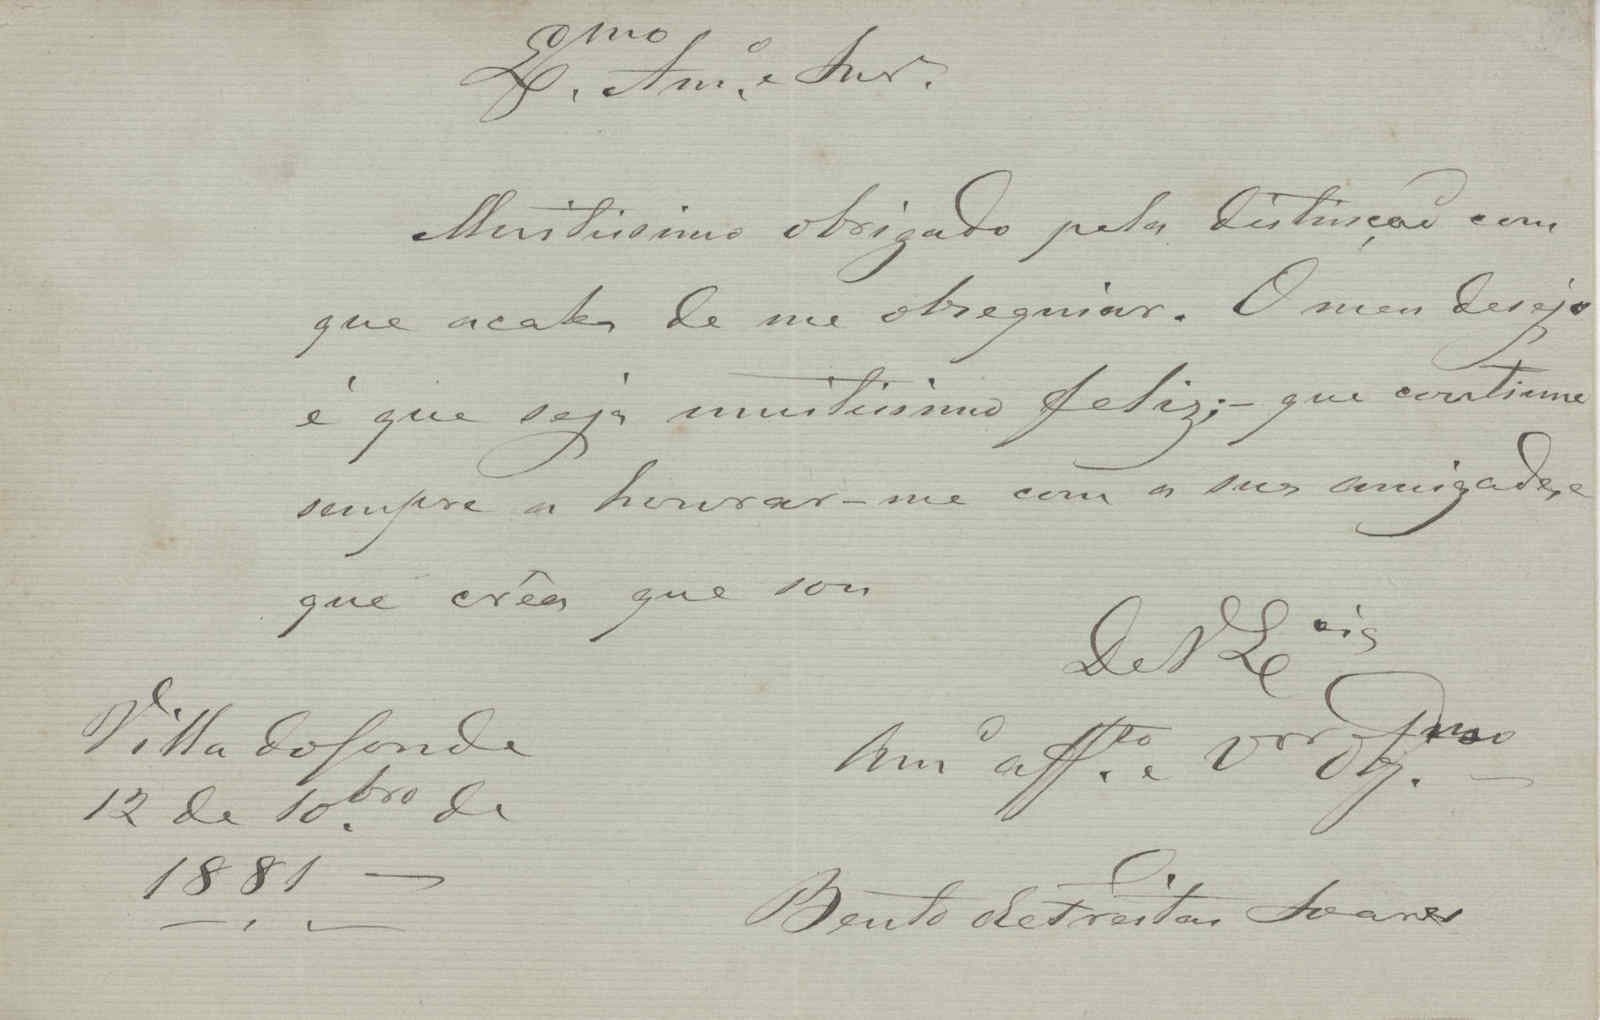 Exmo. Amo. e Snr.
Muitissimo obrigado pela distincção com
que acaba de me obsequiar. O meu desejo
é que seja muitissimo feliz; – que continue
sempre a honrar-me com a sua amizade, e
que crêa que sou
De V Excia
Amo affto. e Vor Obgmo. –
Villa do Conde
12 de 10.bro de
1881 –
Bento de Freitas Soares